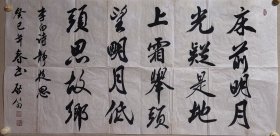 床前明月
光疑是地
上霜舉頭
望明月低
頭思故鄉
李白詩靜夜思
癸巳年春